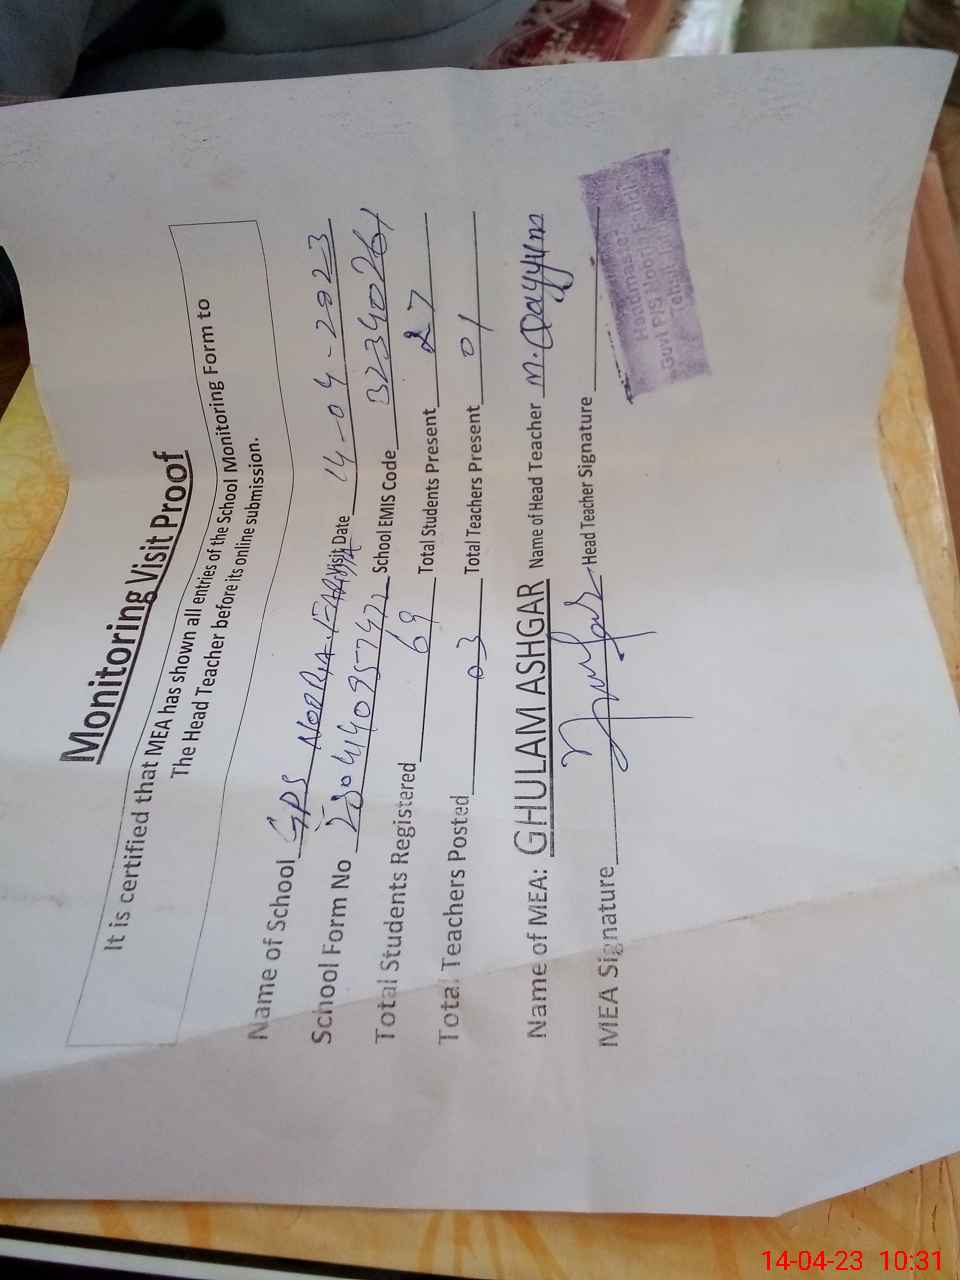 Monitoring Visit Proof
It is certified that MEA has shown all entries of the School Monitoring Form to
The Head Teacher before its online submission.
Name of School GPS Visit Date 14-04-2023
School Form No School EMIS Code 32340261
Total Students Registered 69 Total Students Present 27
Total Teachers Posted 03 Total Teachers Present 01
Name of MEA: GHULAM ASHGAR Name of Head Teacher M. Qayyum
MEA Signature Head Teacher Signature
Govt P/S
14-04-23 10:31